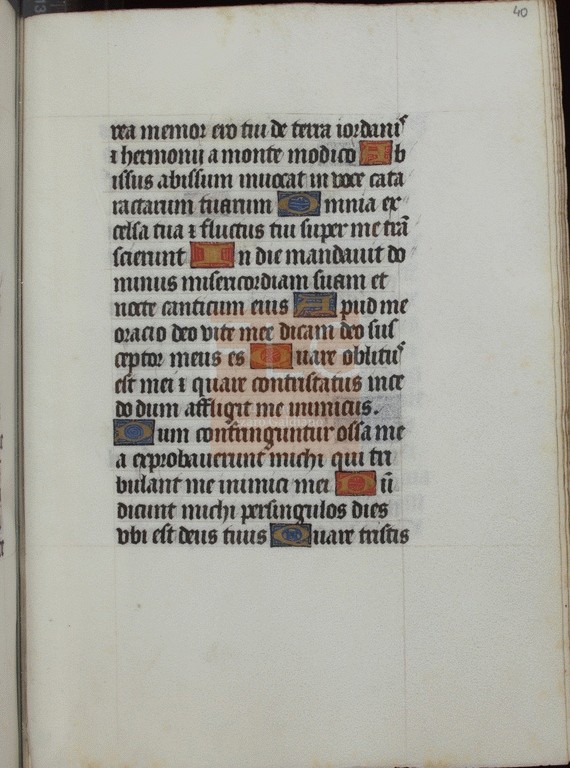 40
rea memor ero tui de terra iordanis
⁊ hermonii a monte modico Ab
issus abissum inuocat in uoce cata
ractarum tuarum Omnia ex
celsa tua ⁊ fluctus tui super me trã
scierunt In die mandauit do
minus misericordiam suam et
nocte canticum eius Apud me
oracio deo vite mee dicam deo sus
ceptor meus es Quare oblitus
est mei ⁊ quare contristatus ince
do dum affligit me inimicus.
Dum confringuntur ossa me
a exprobauerunt michi qui tri
bulant me inimici mei Dũ
dicunt michi persingulos dies
vbi est deus tuus Quare tristis